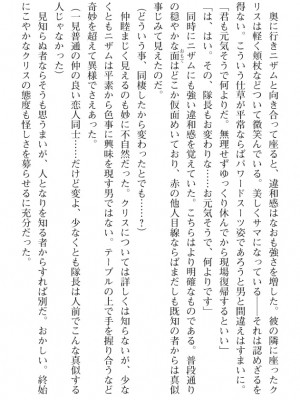 奥に行きニザムと向き合って座ると、違和感はなおも強さを増した。彼の隣に座ったク
リスは軽く頬杖などついて微笑んでいる。美しくサマになっている――それは認めざるを
得ない。こういう仕草が平常ならばパワードスーツ姿であろうと男と間違えはすまいに。
「君も元気そうで何よりだ。無理せずゆっくり休んでから現場復帰するといい」
「は、はい。その、隊長もお変わりな……お元気そうで、何よりです」
同時にニザムにも強い違和感を覚えていた。こちらはより明確なものである。普段通り
の穏やかな面はどこか仮面めいており、赤の他人目線ならばまだしも既知の者からは真似
事じみて見えたのだ。
（どういう事、同棲しだから変わったとでも……？）
仲睦まじく見えるのも妙に不自然だった。クリスについては詳しくは知らないが、少な
くともニザムは平素から色事に興味を現す男ではない。テーブルの上で手を握り合うなど
奇妙を超えて異様でさえあった。
（一見普通の仲の良い恋人同士……だけど変よ、少なくとも隊長は人前でこんな真似する
人じゃなかった）
見知らぬ者ならそうも思うまいが、人となりを知る者からすれば別だ。おかしい。終始
にこやかなクリスの態度も怪しさを募らせるに充分だった。